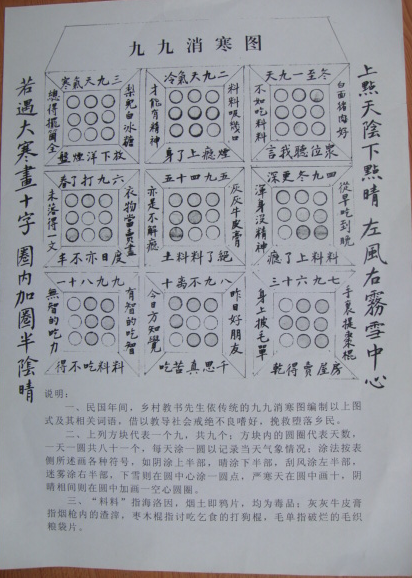 九九消寒图
上點天陰下點晴 左風右霧雪中心
天九一至冬
白面猪肉好
不如吃料料
言我聽位衆
冷氣天九二
料料吸幾口
才能有精神
身了上癮煙
寒氣天九三
梨兒白冰糖
盤煙洋下放
深更深九四
從早吃到晚
渾身沒精神
癮了上料料
五九五
灰灰牛皮膏
亦是不解癮
土料料了絕
春了打九六
衣物當賣盡
未落得一文
年不亦日度
三十六九七
手裏提棗棍
身上披毛單
乾得賣屋房
十离不九八
昨日好朋友
今日方知覺
苦吃真思千
一十八九九
有智的吃智
無智的吃力
得不吃料料
若遇大寒畫十字 圈內加圈半陰晴
说明：
一、民国年间，乡村教书先生依传统的九九消寒图编制以上图
式及其相关词语。借以教导社会戒绝不良嗜好，挽救堕落乡民。
二、上列方块代表一个九，共九个；方块内的圆圈代表天数，
一天一圆共八十一个，每天涂一圆以记录当天气象情况；涂法按表
侧所述画各种符号，如阴涂上半部，晴涂下半部，刮风涂左半部，
迷雾涂右半部，下雪则在圆中心涂一圆点，严寒天在圆中画十，阴
晴相间则在圆中加画一空心圆圈。
三、“料料”指海洛因，烟土即鸦片，均为毒品；灰灰牛皮膏
指烟枪内的渣滓，枣木棍指讨吃乞食的打狗棍，毛单指破烂的毛织
粮袋片。